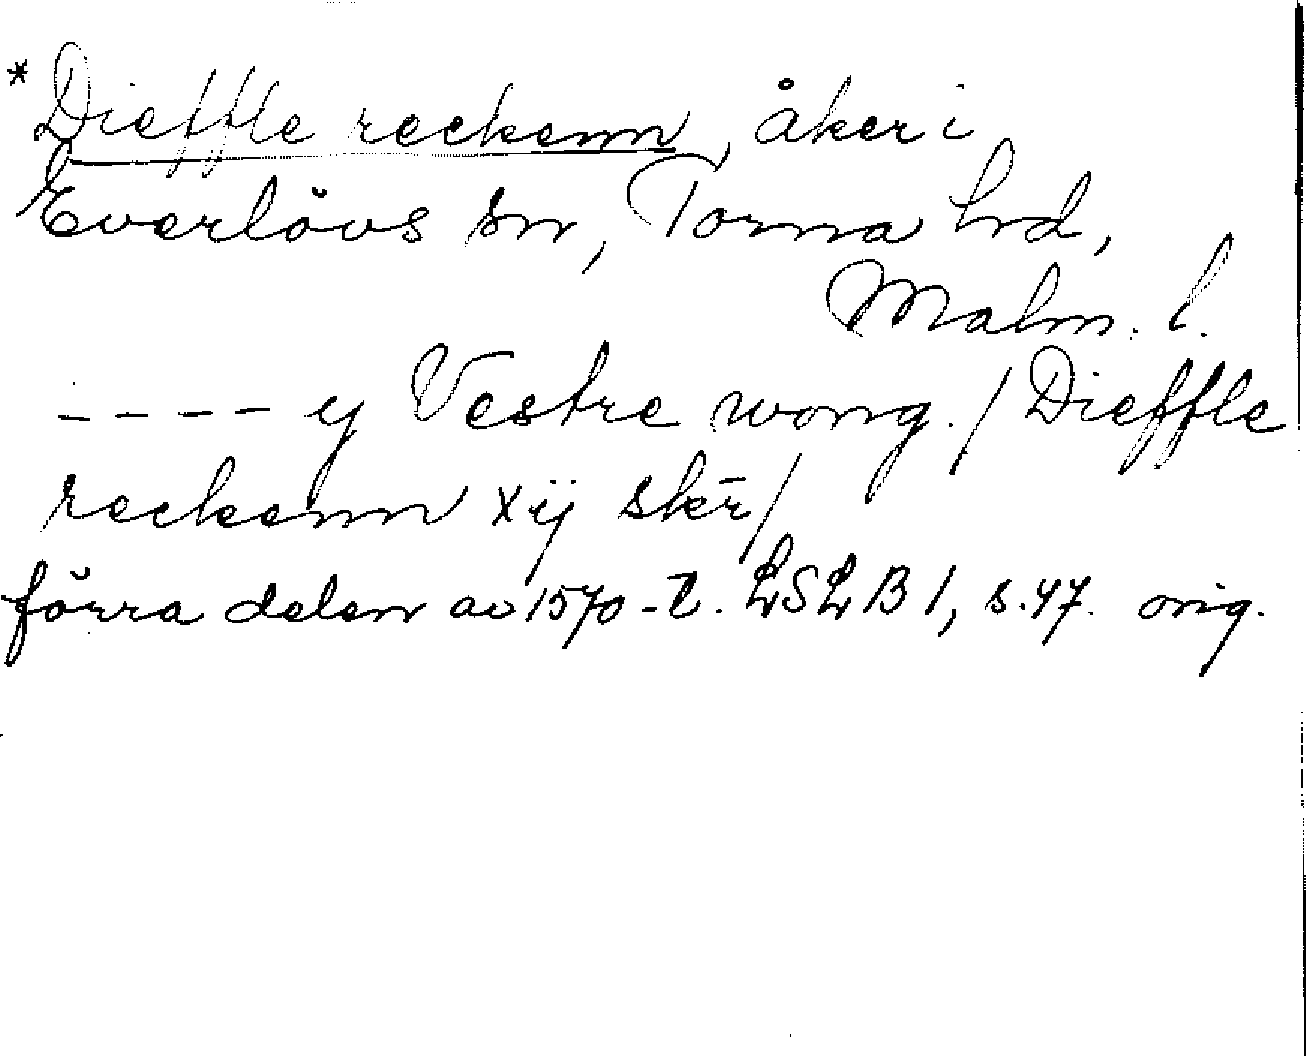 * Dieffle reckenn, åker i
Everlövs sn, Torna hd,
Malm. l.
---- y Vestre wong. / Dieffle
reckenn xij sker̄ /
förra delen av 1570-t. LSLB 1, s. 47. orig.